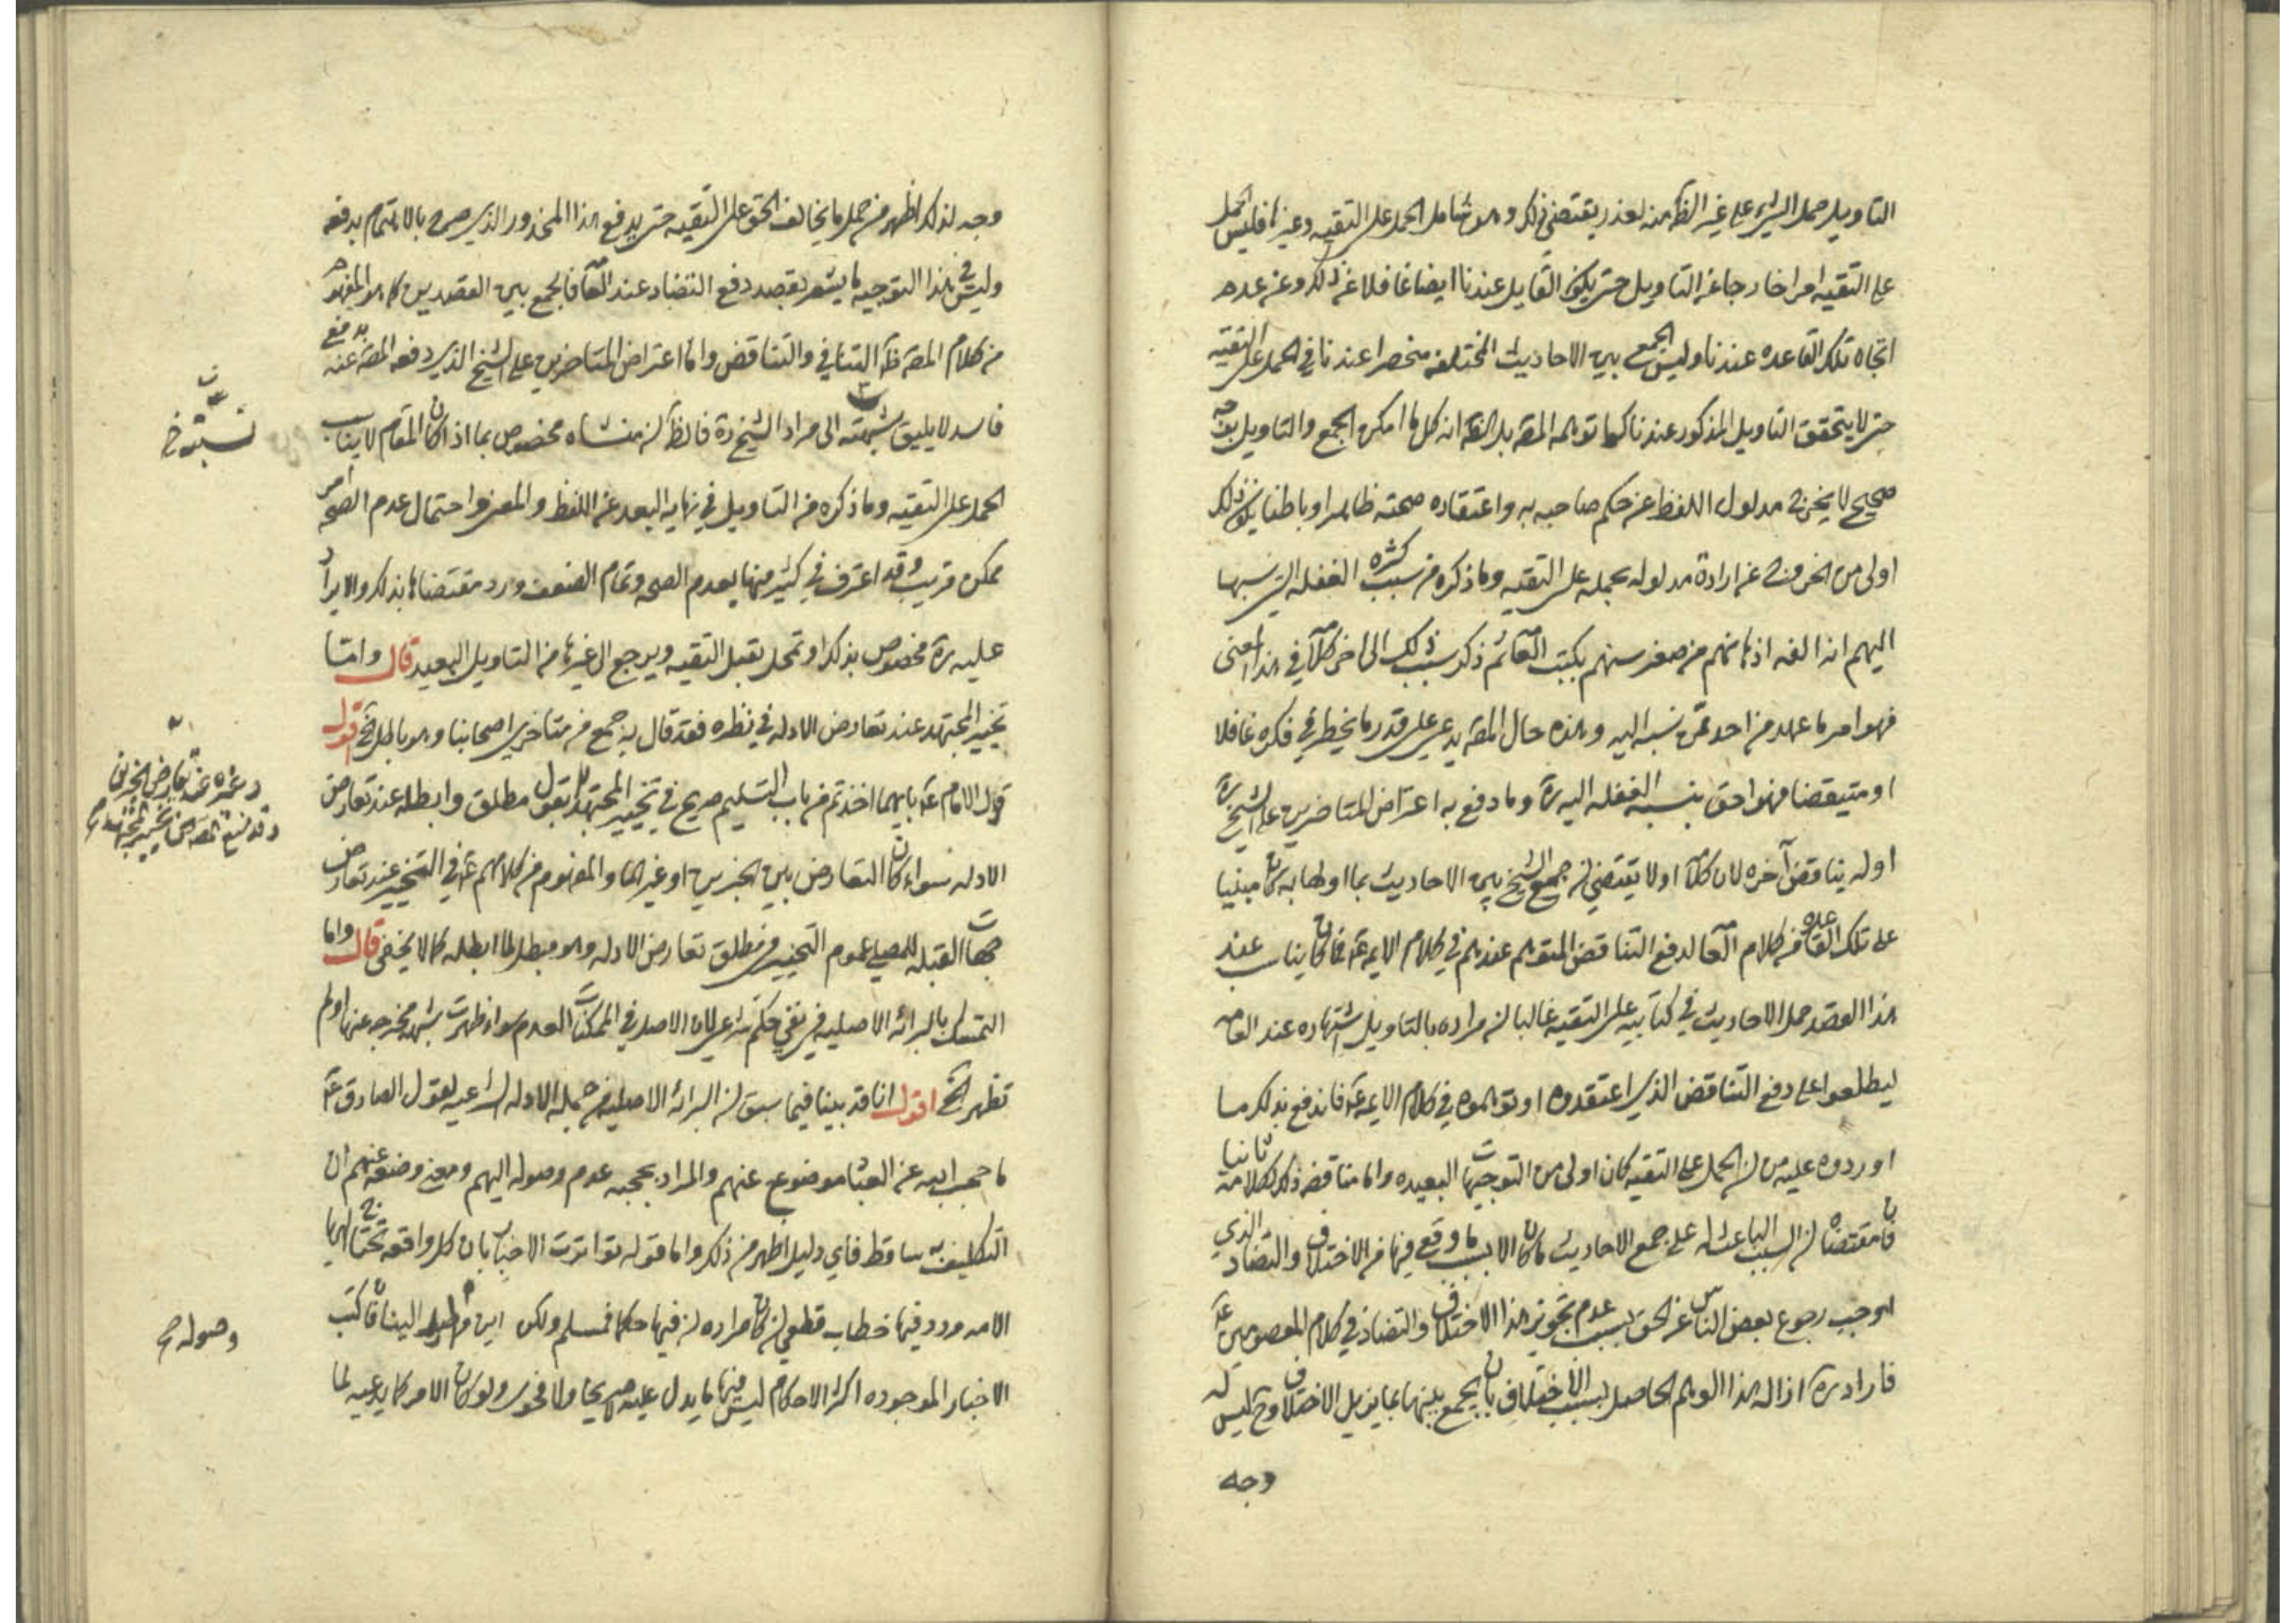 التاويل حمل الشيء على غير الظ منه لعذر يقتضي ذلك وهو شامل الحمل على التقيه وغيرها فليس الحمل
على التقيه امرا خارجا عن التاويل حتى يكون القايل عندنا ايضا غافلا عن ذلك وعن عدم
اتجاه تلك القاعده عندنا وليس الجمع بين الاحاديث المختلفه منحصرا عندنا في الحمل على التقيه
حتى لا يتحقق التاويل المذكور عندنا كما توهمه المصه بل الظ انه كل ما امكن الجمع والتاويل بوجه
صحيح لا يخرج مدلول اللفظ عن حكم صاحبه به واعتقاده صحته ظاهرا وباطنا يكون ذلك
اولى من الخروج عن ارادة مدلوله بحمله على التقيه وما ذكره من سبب كثره الغفله التي نسبها
اليهم انه الفه اذهانهم من صغر سنهم بكتب العامه ثم ذكر سبب ذلك الى اخر كلامه في هذا المعنى
فهوامر ما عهد من احد ممن نسبه اليه وهذه حال المصه يدعي على قدر ما يخطر في فكره غافلا
او متيقضا فهو احق بنسبه الغفله اليه ره وما دفع به اعتراض المتاخرين على الشيخ ره
اوله يناقض آخره لان كلامه اولا يقتضي ان جمع الشيخ بين الاحاديث بما اولها به كان مبنيا
على تلك القاعده من كلام العامه لدفع التناقض المتوهم عندهم في كلام الايمه ع فما كان يناسب عند
هذا القصد حمل الاحاديث في كتابيه على التقيه غالبا لان مراده بالتاويل اشتهاره عند العامه
ليطلعوا على دفع التناقض الذي اعتقدوه او توهموه في كلام الايمه ع فاندفع بذلك ما
اوردوه عليه من ان الحمل على التقيه كان اولى من التوجيهات البعيده واما مناقضه ذلك لكلامه ثانيا
فان مقتضاه ان السبب الباعث له على جمع الاحاديث ما كان الا بسبب ما وقع فيها من الاختلاف والتضاد الذي
اوجب رجوع بعض الناس عن الحق بسبب عدم تجويز هذا الاختلاف والتضاد في كلام المعصومين ع
فاراد ره ازاله هذا الوهم الحاصل بسبب الاختلاف بان يجمع بينها بما يزيل الاختلاف وح ليس له
وجه
وجه لذلك اظهر من حمل ما يخالف الحق على التقيه حتى يدفع هذا المحذور الذي صرح بالاهتمام بدفعه
وليس في هذا التوجيه ما يشعر بقصد دفع التضاد عند العامه فالجمع بين القصدين كما هو المفهوم
من كلام المصه ظ التنافي والتناقض واما اعتراض المتاخرين على الشيخ الذي دفعه المصه عنه بدفع
فاسد لا يليق نسبته الى مراد الشيخ ره فالظ ان منشاه مخصوص بما اذا كان المقام لا يناسب
الحمل على التقيه وما ذكره من التاويل في نهايه البعد عن اللفظ والمعنى واحتمال عدم الصحه امر
ممكن قريب وقد اعترف في كثير منها بعدم الصحه وتمام الضعف ورد مقتضاها بذلك والايراد
عليه ره مخصوص بذلك او بمحل يقبل التقيه ويرجع الى غيرها من التاويل البعيد قال واما
تخيير المجتهد عند تعارض الادله في نظره فقد قال به جمع من متاخري اصحابنا وهو باطل الخ اقول
قول الامام ع بايهما اخذتم من باب التسليم صريح في تخيير المجتهد بقول مطلق وابطله عند تعارض
الادله سواء كان التعارض بين الخبرين او غيرهما والمفهوم من كلامهم ع في التخيير عند تعارض
جهات القبله للمصلي عموم التخيير في مطلق تعارض الادله وهو مبطل لما ابطله كما لا يخفى قال واما
التمسك بالبرائه الاصليه في نفي حكم شرعي لان الاصل في الممكنات العدم سواء ظهرت شبهه مخرجه عنها اولم
تظهر الخ اقول انا قد بينا فيما سبق ان البرائه الاصليه من جمله الادله الشرعيه لقول الصادق ع
ما حجب الله عن العباد موضوع عنهم والمراد بحجبه عدم وصوله اليهم ومعنى وضعه عنهم ان
التكليف به ساقط فاي دليل اظهر من ذلك واما قوله تواترت الاخبار بان كل واقعه تحتاج اليها
الامه ورد فيها خطاب قطعي ان كان مراده ان فيها حكما فمسلم ولكن اين الينا فان كتب
الاخبار الموجوده اكثر الاحكام ليس فيها ما يدل عليه صريحا ولا فحوى ولو كان الامر كما يدعيه لما
نسبته خ
وغيره عند تعارض الخبرين
وصوله صح